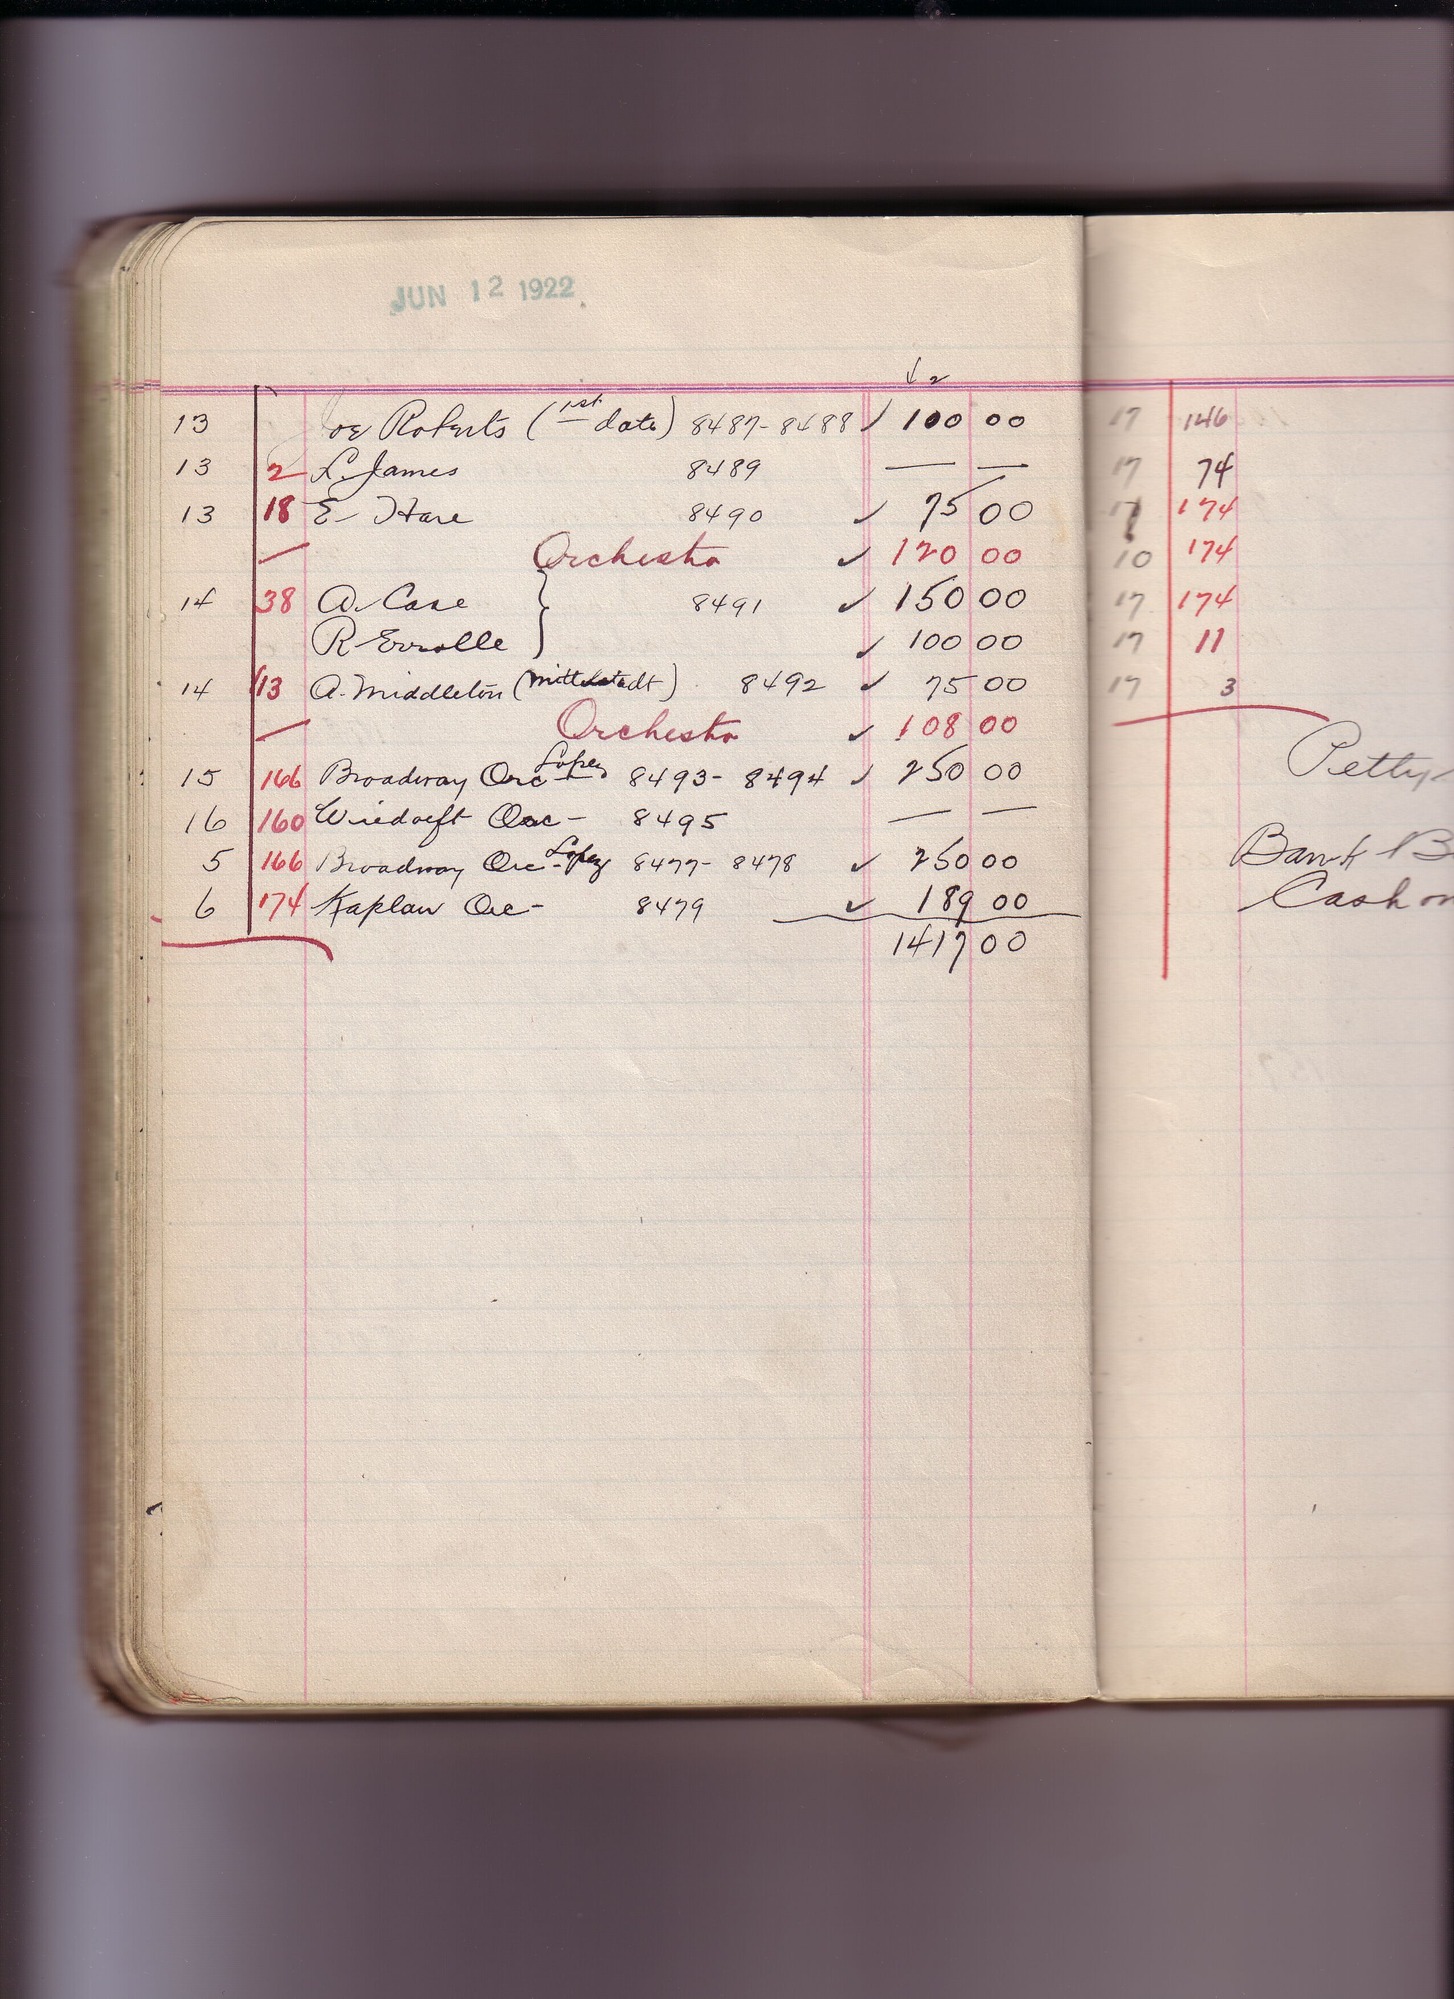 JUN 12 1922
13 Joe Roberts (1st date) 8487-8488 ✓ 100 00
13 2 L. James 8489 — —
13 18 E Hare 8490 ✓ 75 00
— Orchestra ✓ 120 00
14 38 A. Case 8491 ✓ 150 00
R Errolle ✓ 100 00
14 13 A. Middleton (Mittelstadt) 8492 ✓ 75 00
— Orchestra ✓ 108 00
15 166 Broadway Orc Lopez 8493-8494 ✓ 250 00
16 160 Wiedoeft Orc- 8495 — —
5 166 Broadway Orc-Lopez 8477-8478 ✓ 250 00
6 174 Kaplan Orc- 8479 ✓ 189 00
1417 00
17 146
17 74
17 174
10 174
17 174
17 11
17 3
Petty
Bank B
Cash on